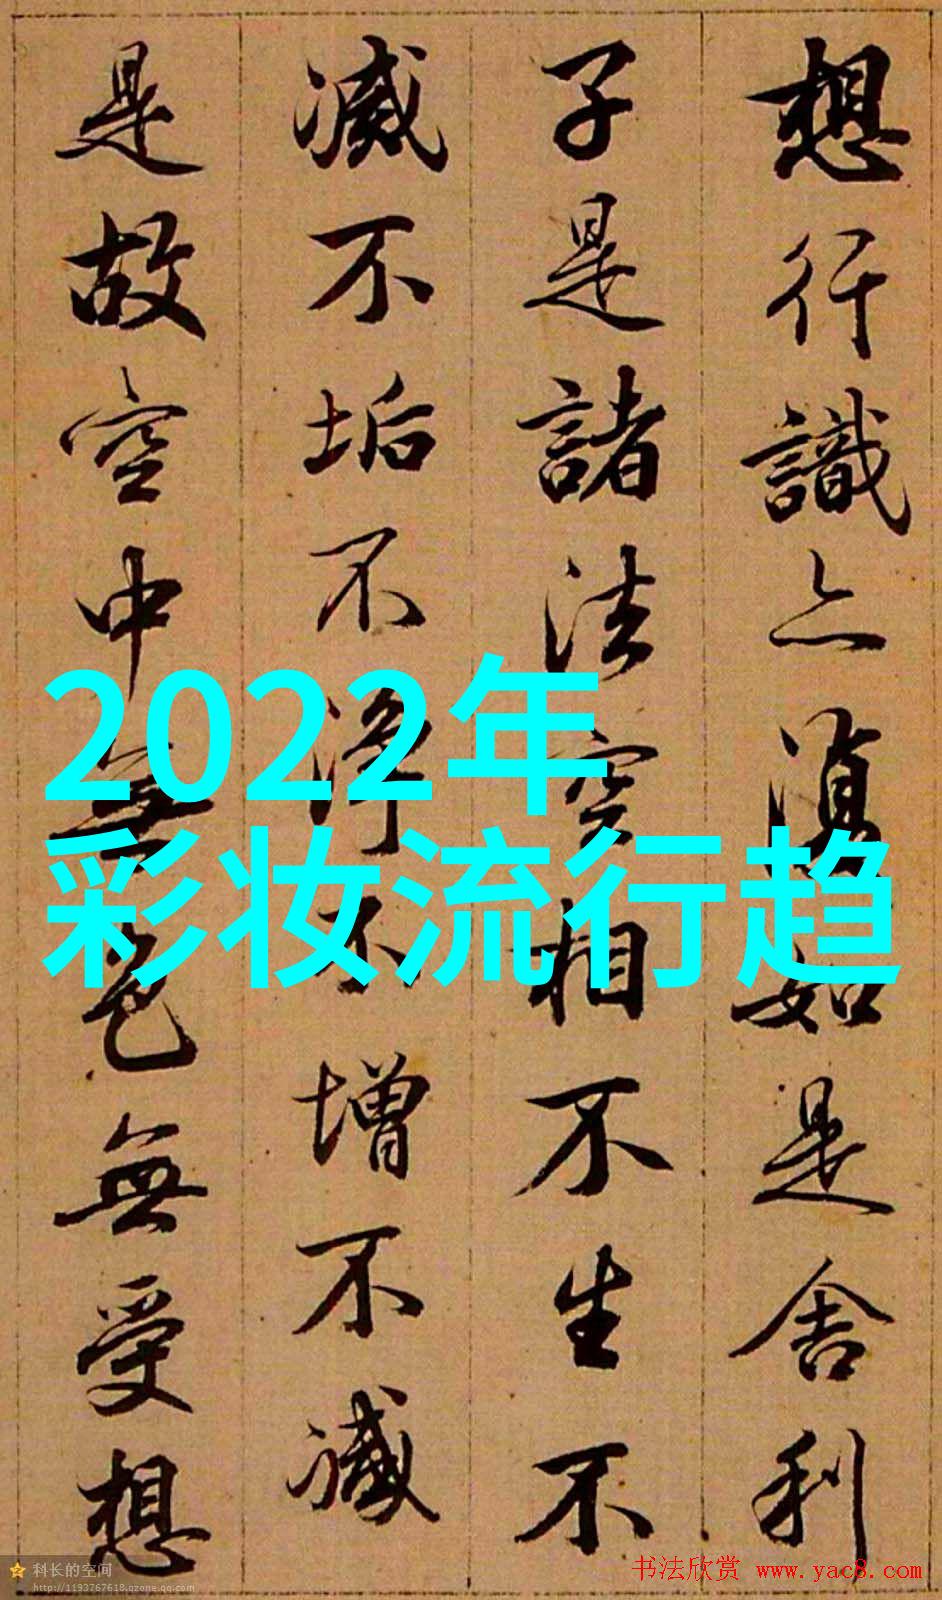 想行識亦復如是舍利
子是諸法空相不生不
滅不垢不淨不增不減
是故空中無色無受想
2022年
彩妆流行趋
科长的空间
http://1193767618.qzone.qq.com
书法欣赏 www.yac8.com